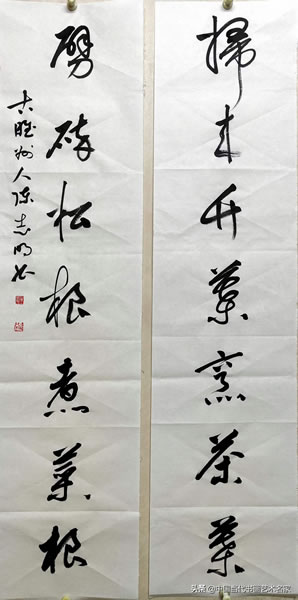 掃来竹葉烹茶葉
劈碎松根煮菜根
古睢州人陈志明书
头条 @中国当代书画艺术名家